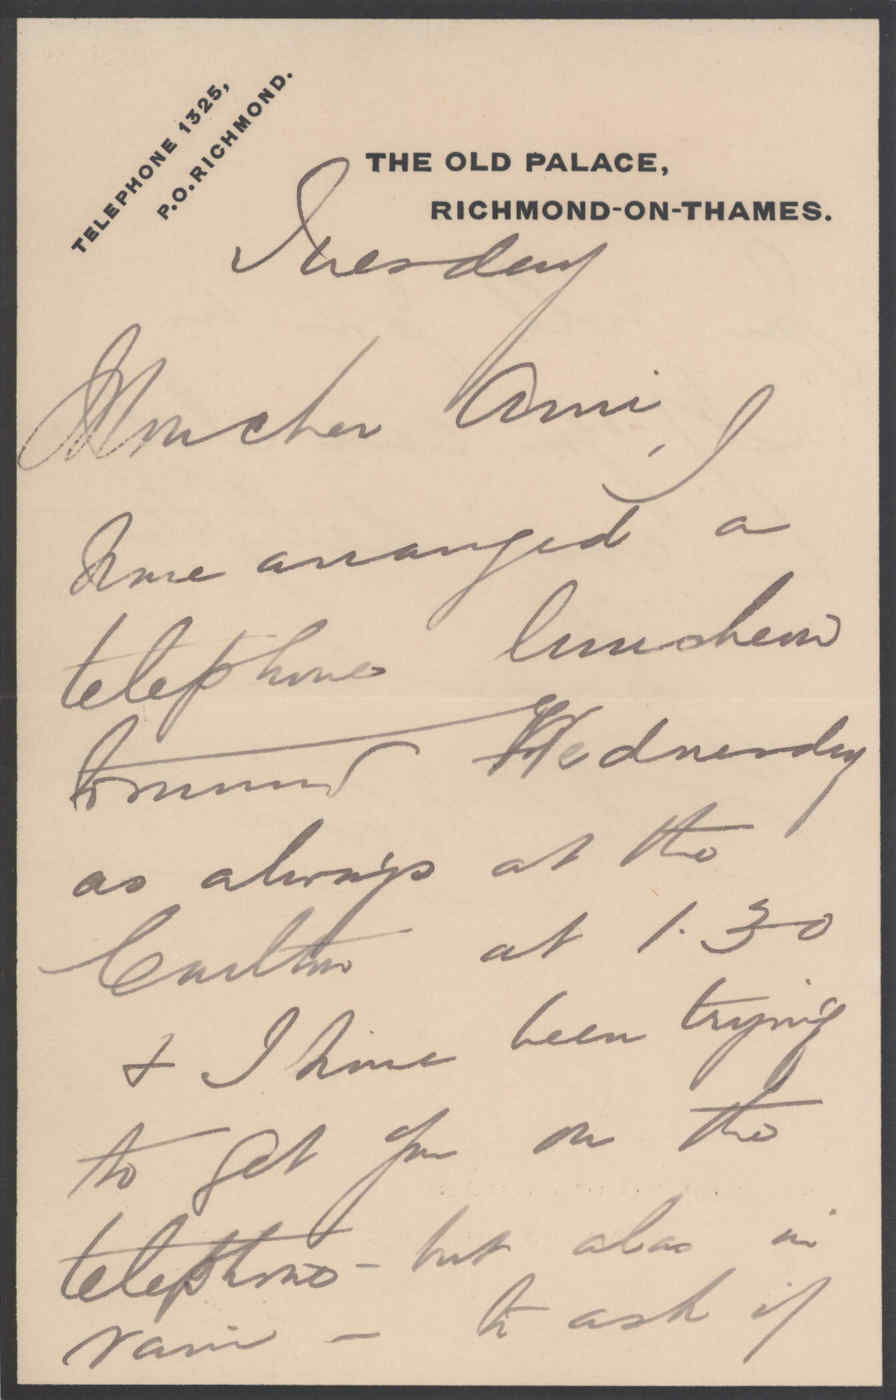 TELEPHONE 1325,
P.O. RICHMOND.
THE OLD PALACE,
RICHMOND-ON-THAMES.
Tuesday
Mon cher Ami, I
have arranged a
telephone luncheon
tomorrow Wednesday
as always at the
Carlton at 1.30
& I have been trying
to get you on the
telephone - but alas in
vain - to ask if